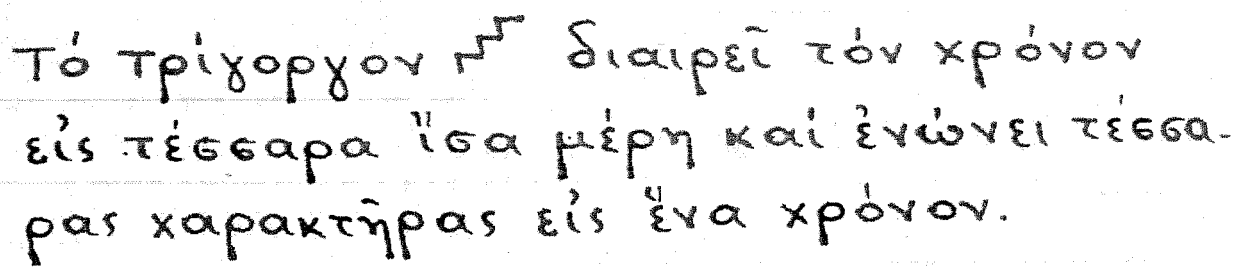 Τό τρίγοργον διαιρεῖ τόν χρόνον
εἰς τέσσαρα ἴσα μέρη καί ἑνώνει τέσσα-
ρας χαρακτῆρας εἰς ἕνα χρόνον.